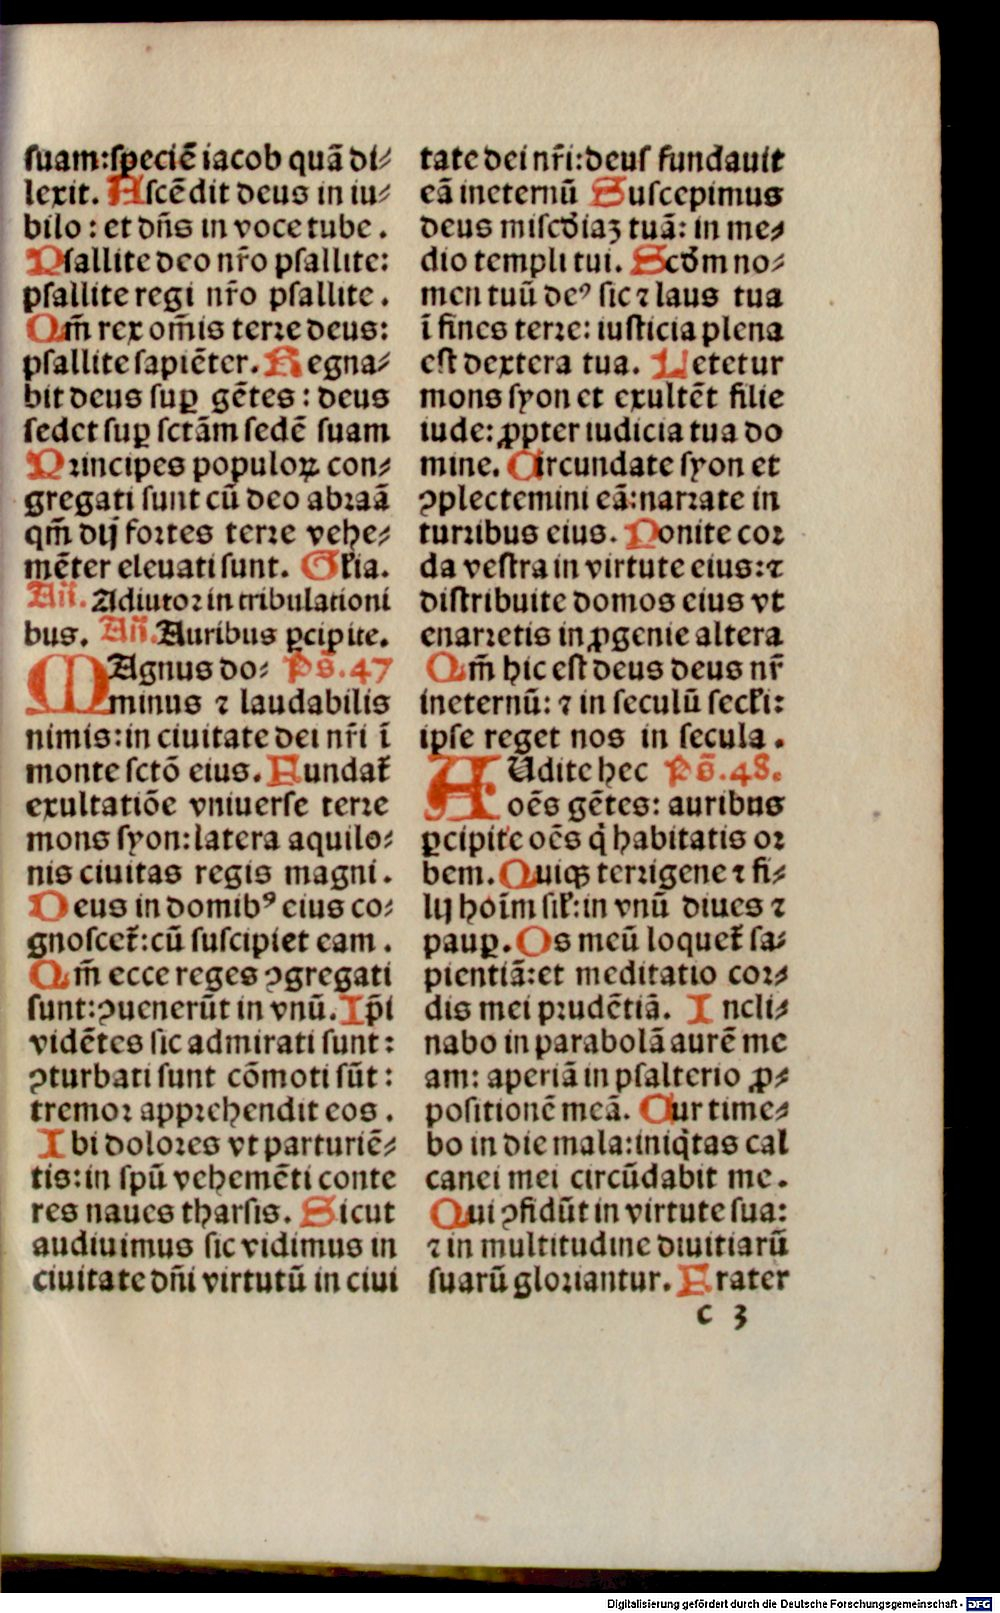 suam:speciē iacob quā di⸗
lexit. Ascēdit deus in iu⸗
bilo : et dn̄s in voce tube .
Psallite deo nr̄o psallite:
psallite regi nr̄o psallite .
Qm̄ rex om̄is terre deus:
psallite sapiēter. Regna⸗
bit deus suꝑ gētes : deus
sedet suꝑ sctām sedē suam
Principes populoꝝ con⸗
gregati sunt cū deo abraā
qm̄ dij fortes terre vehe⸗
mēter eleuati sunt. Glꝛia.
An̄. Adiutor in tribulationi
bus. An̄. Auribus ꝑcipite.
MAgnus do⸗ Ps̄.47
minus ⁊ laudabilis
nimis:in ciuitate dei nr̄i ī
monte sctō eius. Fundat᷑
exultatiōe vniuerse terre
mons syon:latera aquilo⸗
nis ciuitas regis magni .
Deus in domibꝰ eius co⸗
gnoscet᷑:cū suscipiet eam .
Qm̄ ecce reges ꝯgregati
sunt:ꝯuenerūt in vnū. Ip̄i
vidētes sic admirati sunt :
ꝯturbati sunt cōmoti sūt :
tremor apprehendit eos .
Ibi dolores vt parturiē⸗
tis:in spū vehemēti conte
res naues tharsis. Sicut
audiuimus sic vidimus in
ciuitate dn̄i virtutū in ciui
tate dei nr̄i:deus fundauit
eā ineternū Suscepimus
deus misc̄diaꝫ tuā: in me⸗
dio templi tui. Scd̄m no⸗
men tuū deꝰ sic ⁊ laus tua
ī fines terre: iusticia plena
est dextera tua. Letetur
mons syon et exultēt filie
iude: ꝓpter iudicia tua do
mine. Circundate syon et
ꝯplectemini eā:narrate in
turribus eius. Ponite cor
da vestra in virtute eius:⁊
distribuite domos eius vt
enarretis in ꝓgenie altera
Qm̄ hic est deus deus nr̄
ineternū: ⁊ in seculū seclꝛi:
ipse reget nos in secula .
AUdite hec Ps̄.48.
oēs gētes: auribus
ꝑcipite oēs q̄ habitatis or
bem. Quiqꝫ terrigene ⁊ fi⸗
lij hoīm silꝛ:in vnū diues ⁊
pauꝑ. Os meū loquet᷑ sa⸗
pientiā:et meditatio cor⸗
dis mei prudētiā. Incli⸗
nabo in parabolā aurē me
am: aperiā in psalterio ꝓ⸗
positionē meā. Cur time⸗
bo in die mala:iniq̇tas cal
canei mei circūdabit me .
Qui ꝯfidūt in virtute sua:
⁊ in multitudine diuitiarū
suarū gloriantur. Frater
c 3
Digitalisierung gefördert durch die Deutsche Forschungsgemeinschaft - DFG